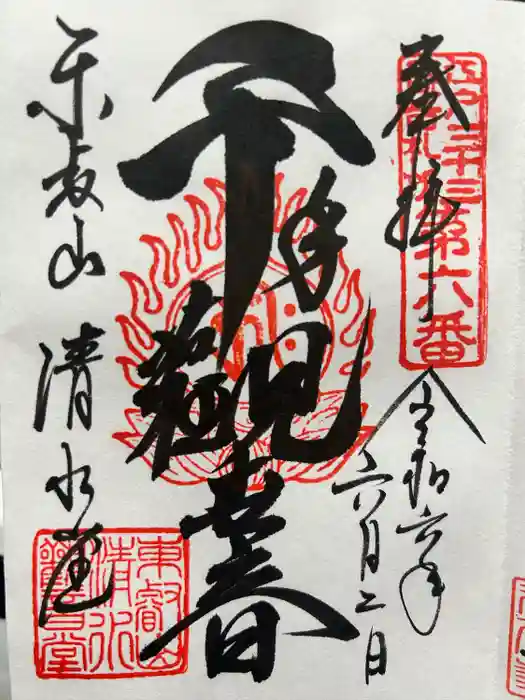 奉拝
江戸三十三番第六番
令和六年
六月二日
千手観世音
東叡山
清水堂
東叡山
清水
観音堂